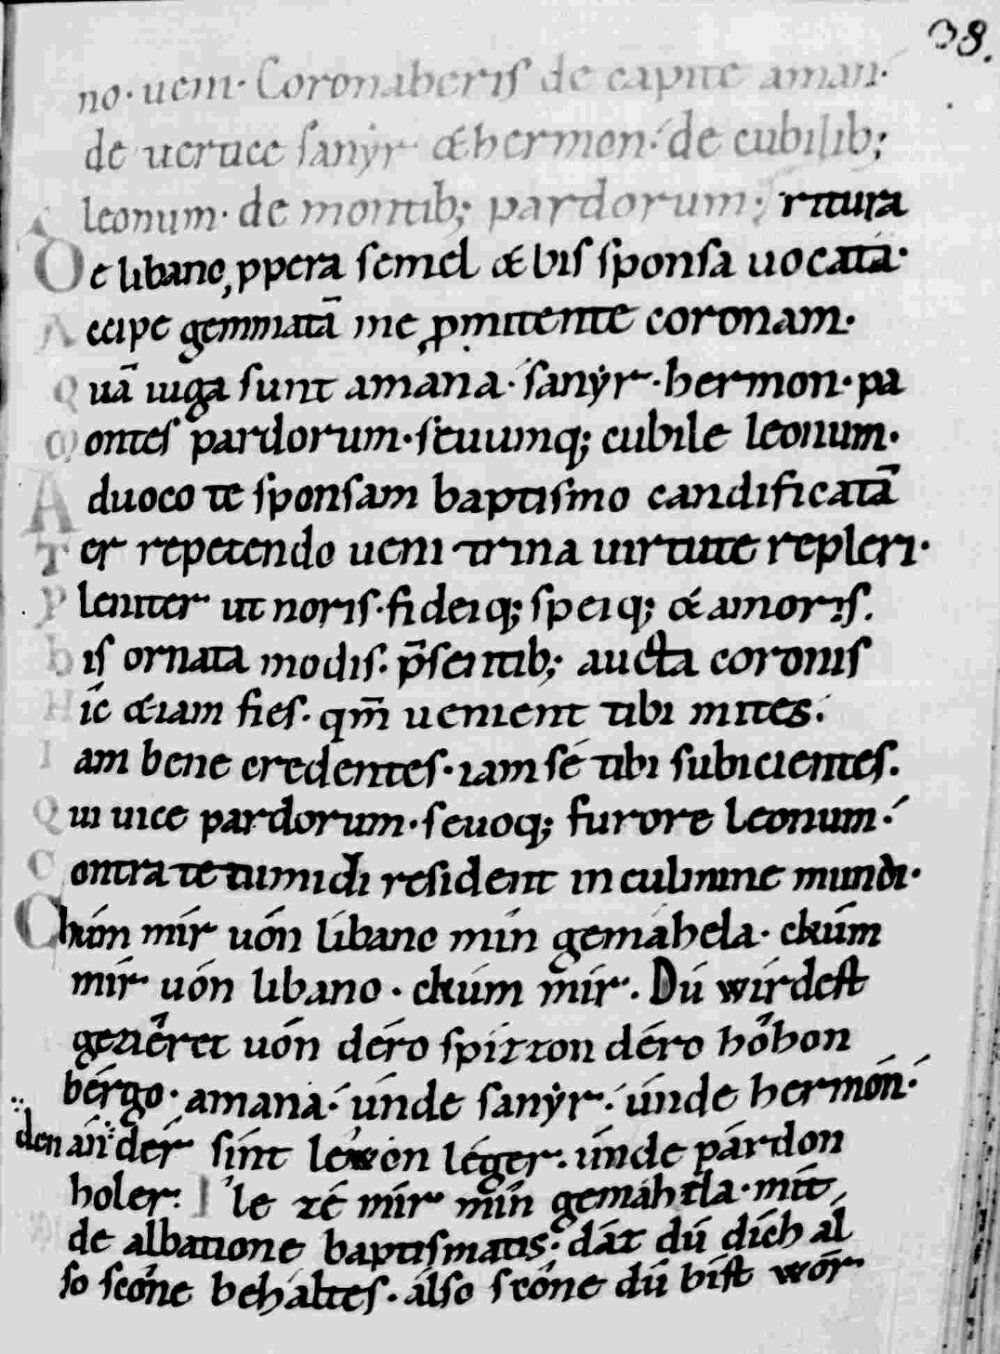 38.
no. ueni. Coronaberis de capite aman.
de uertice sanẏr &hermon. de cubilib;
leonum. de montib; pardorum. ritura
De libano, ppera semel & bis sponsa uocata.
Accipe gemmatā me p̱mittente coronam.
Quā iuga sunt amana. sanẏr. hermon. pa
Montes pardorum. seuumq; cubile leonum.
Aduoco te sponsam baptismo candificatā
Ter repetendo ueni trina uirtute repleri.
Pleniter ut noris. fideiq; speiq; & amoris.
his ornata modis. p̄sentib; aucta coronis
Hic &iam fies. qm̄ uenient tibi mites.
Iam bene credentes. iam sé tibi subicientes.
Qui uice pardorum. seuoq; furore leonum.
Contra te tumidi resident in culmine mundi.
Chúm mír uón líbano mín gemáhela. chúm
mír uón libano. chúm mír. Dú wírdest
geziêret uón déro spízzon déro hôhon
bérgo. amana. únde sanẏr. únde hermón.
den án der sínt léwon léger. únde párdon
holer. Île zé mír mín gemáhela. mít
de albatione baptismatis. dáz dú dích al
so scône beháltes. álso scône dú bíst wór